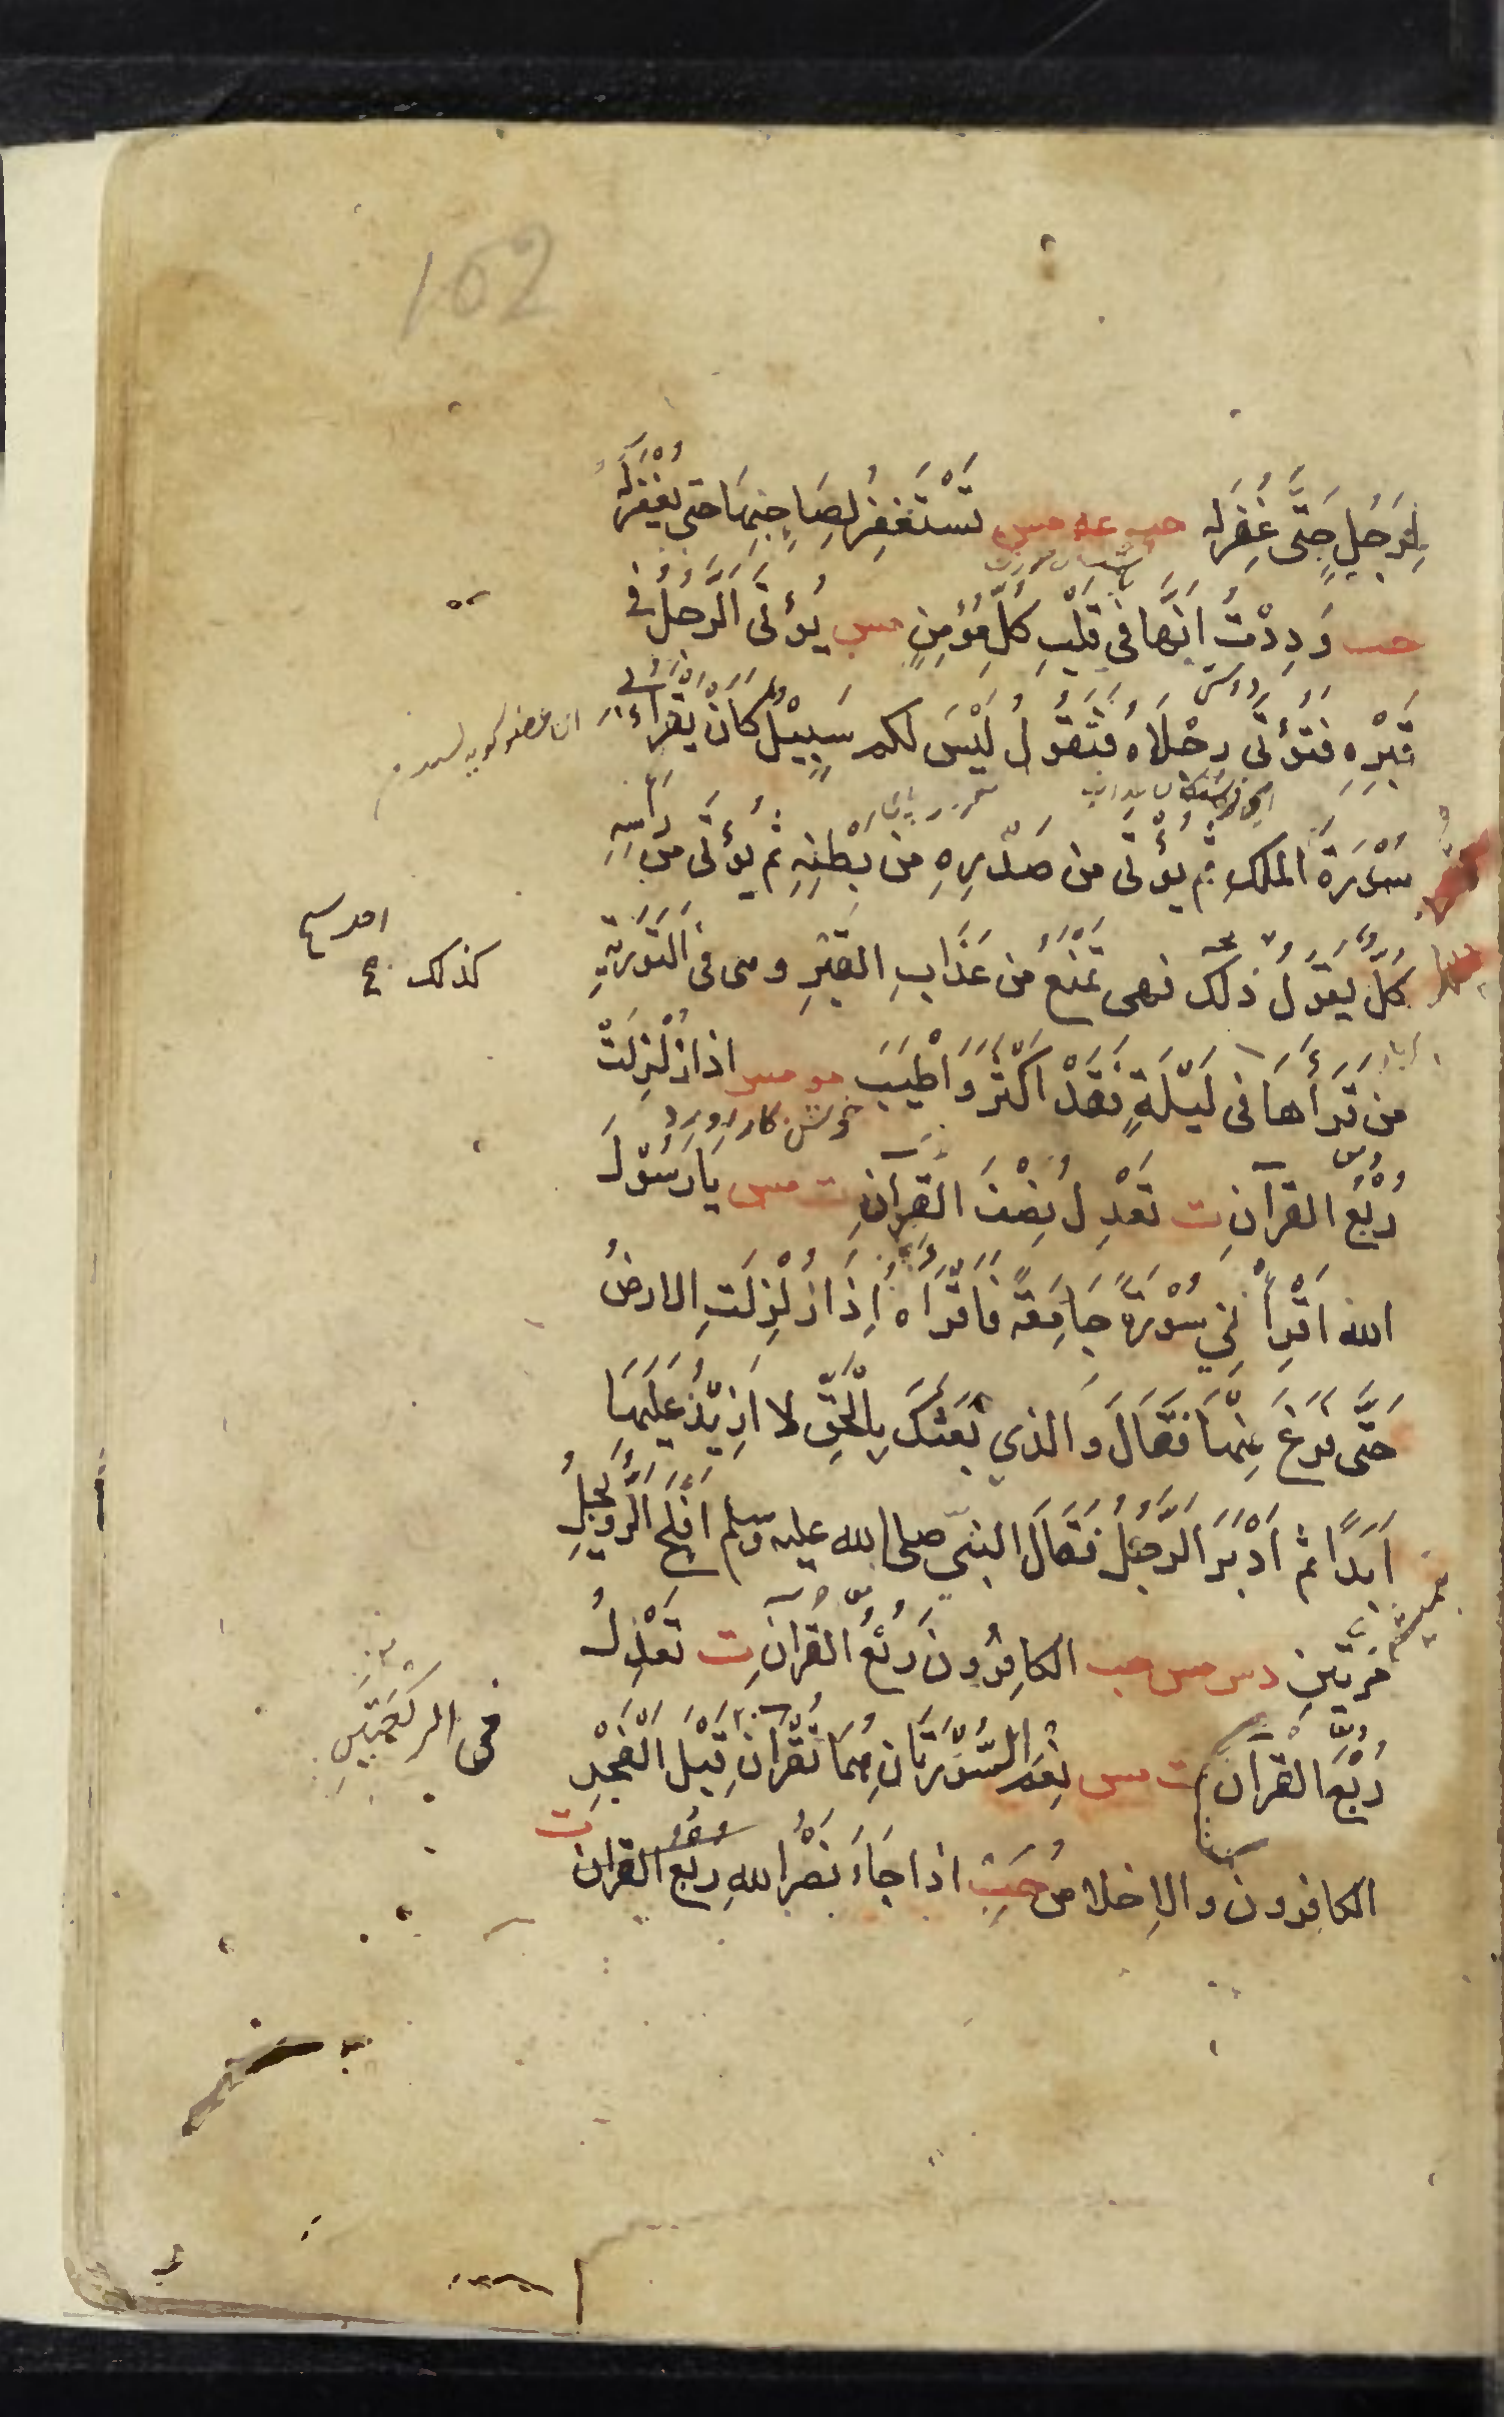 162
لِرَجُلٍ حَتَّى غُفِرَ لَه حب عه مس تَسْتَغْفِرُ لِصَاحِبِهَا حَتى يُغْفَرَ لَهُ
حب وَدِدْتُ اَنَّهَا فِي قَلْبِ كُلِّ مُؤْمِنٍ مس يُؤْتَى الرَّجُلُ فِي
قَبْرِهِ فَتُؤْتَى رِجْلَاهُ فَتَقُولُ لَيْسَ لكم سَبِيْلٌ كَانَ يَقْرَأُ
سُوْرَةَ الملك ثم يُؤْتَى من صَدْرِهِ من بَطْنِهِ ثم يُؤْتَى مِن رَاسِهِ
كُلٌّ يَقُولُ ذلك فهى تَمْنَعُ مِن عَذَابِ القَبْرِ وهى فى التَّوْرَىةِ
كذلك
من قَرَأَهَا فى لَيْلَةٍ فَقَدْ اَكْثَرَ وَاَطْيَبَ مو مس اذا زُلْزِلَتْ
رُبْعُ القرآنِ ت تَعْدِلُ نِصْفَ القُرآنِ ت مس يَا رَسُوْلَ
الله اَقْرِأْنِي سُوْرَةً جَامِعَةً فَاَقْرَأَهُ اِذَا زُلْزِلَتِ الارضُ
حَتَّى فَرَغَ مِنْهَا فَقَالَ وَالذي بَعَثَكَ بِالْحَقِّ لا اَزِيْدُ عَلَيْهَا
اَبَدًا ثم اَدْبَرَ الرَّجُلُ فَقَالَ النبي صلى الله عليه وسلم اَفْلَحَ الرُّوَيْجِلُ
مَرَّتَيْنِ دس مس حب الكافِرُونَ رُبْعُ القُرآنِ ت تَعْدِلُ
رُبْعَ القُرآنِ ت مس نِعْمَ السُّوْرَتَانِ هُمَا تُقْرَآنِ قَبْلَ الفَجْرِ
فى الركعَتَيْنِ
الكافرون والاِخلاص حب اذا جَاءَ نَصْرُ اللهِ رُبْعُ القران ت